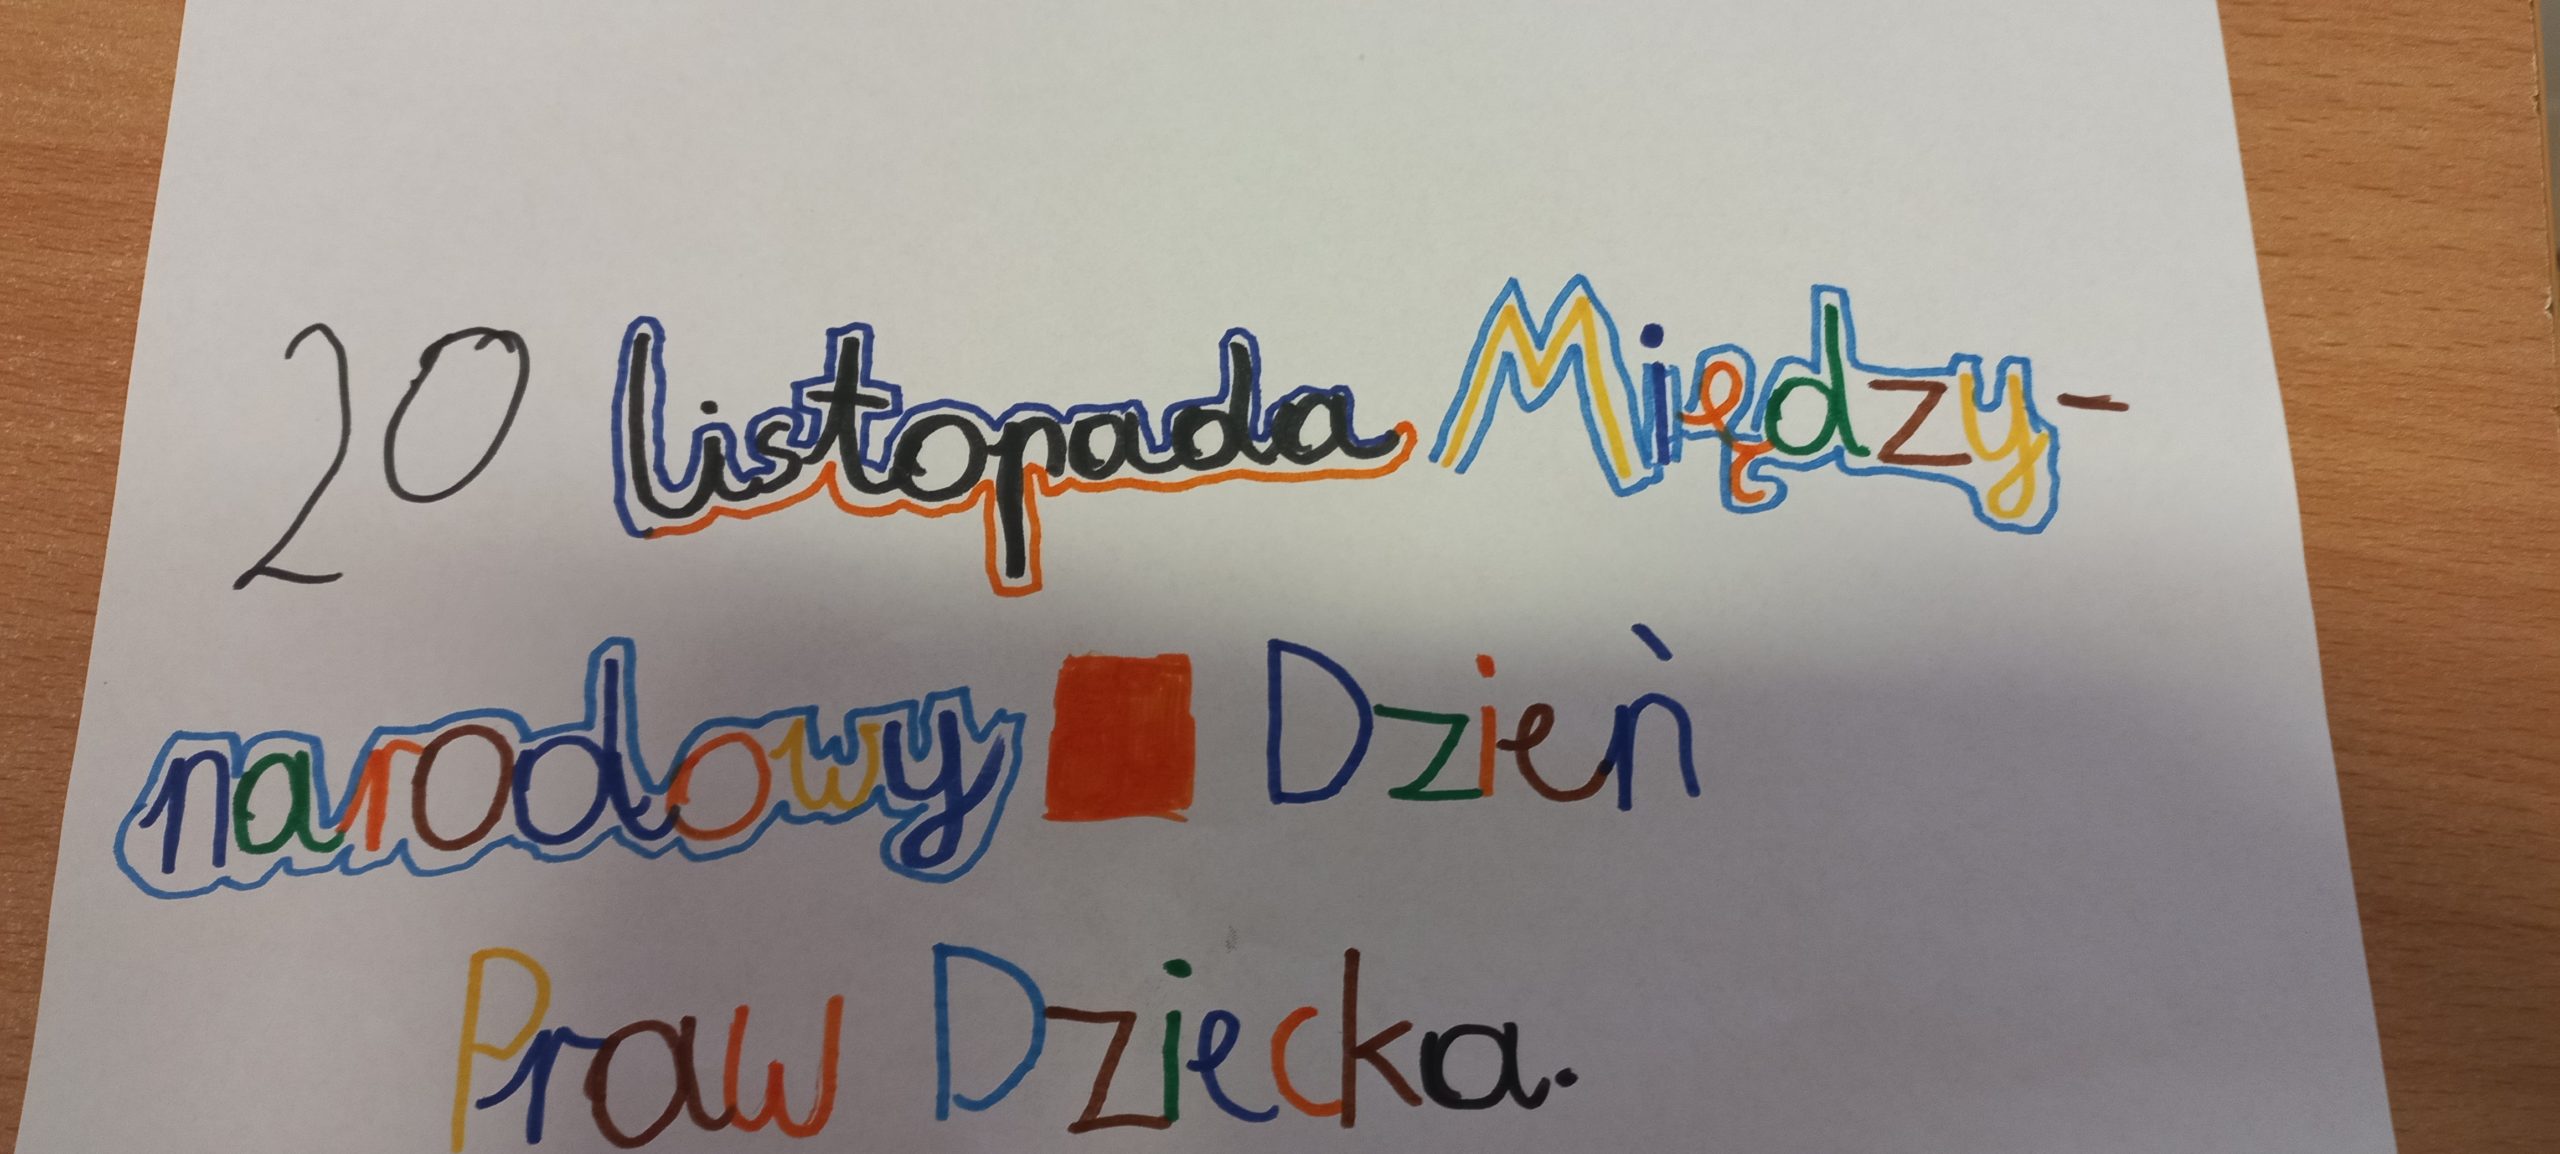 20 listopada Między-
narodowy Dzień
Praw Dziecka.